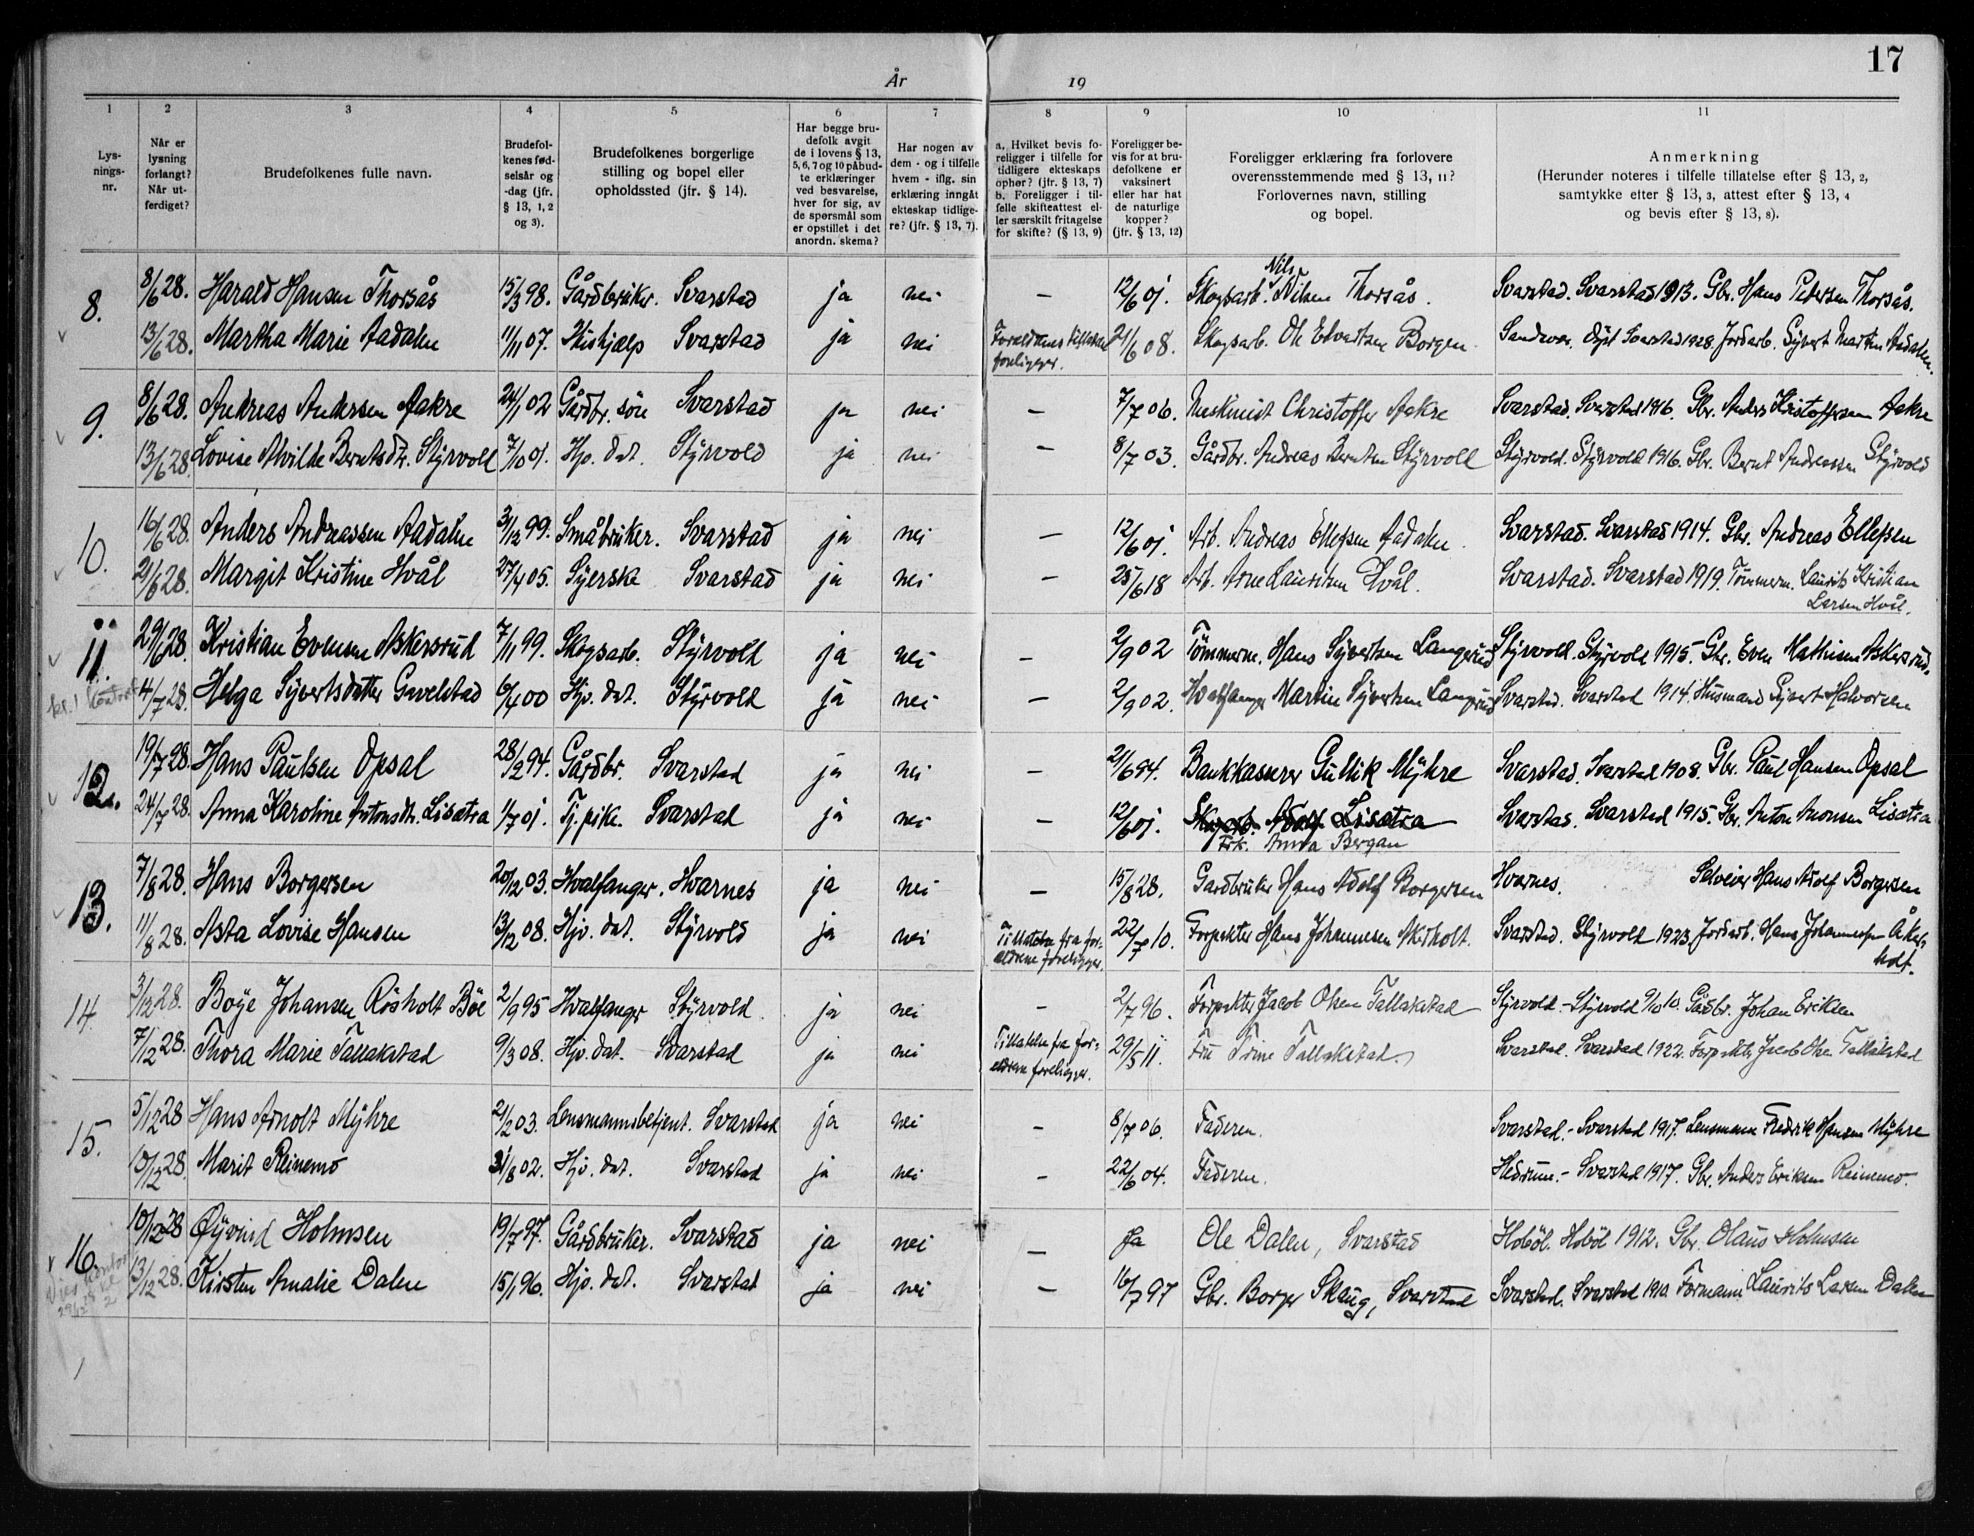 17
År 19
1 2 3 4 5 6 7 8 9 10 11
Lysningsnr.
Når er lysning forlangt? Når utferdiget?
Brudefolkenes fulle navn.
Brudefolkenes fødselsår og -dag (jfr. § 13, 1, 2 og 3).
Brudefolkenes borgerlige stilling og bopel eller opholdssted (jfr. § 14).
Har begge brudefolk avgit de i lovens § 13, 5, 6, 7 og 10 påbudte erklæringer ved besvarelse, hver for sig, av de spørsmål som er opstillet i det anordn. skema?
Har nogen av dem - og i tilfelle hvem - iflg. sin erklæring inngåt ekteskap tidligere? (jfr. § 13, 7).
a. Hvilket bevis foreligger i tilfelle for tidligere ekteskaps ophør? (jfr. § 13, 7) b. Foreligger i tilfelle skifteattest eller særskilt fritagelse for skifte? (§ 13, 9)
Foreligger bevis for at brudefolkene er vaksinert eller har hat de naturlige kopper? (jfr. § 13, 12)
Foreligger erklæring fra forlovere overensstemmende med § 13, 11? Forlovernes navn, stilling og bopel.
Anmerkning (Herunder noteres i tilfelle tillatelse efter § 13, 2, samtykke efter § 13, 3, attest efter § 13, 4 og bevis efter § 13, 8).
8. 8/6 28. Harald Hansen Thorsås 15/3 98. Gårdbruker. Svarstad ja nei — 12/6 01. Skogsarb. Nils Nilsen Thorsås. Svarstad. Svarstad 1913. Gbr. Hans Pedersen Thorsås.
13/6 28. Martha Marie Aadalen 11/11 07. Hushjælp Svarstad ja nei Foreldrenes tillatelse foreligger. 21/6 08. Skogsarb. Ole Edvardsen Borgen. Sandsvær. Svarstad 1928. Jordarb. Syvert Martin Aadalen.
9. 8/6 28. Andreas Andersen Aakre 24/1 02 Gårdbr. søn Svarstad ja nei — 7/7 06. Christoffer Aakre Svarstad. Svarstad 1916. Gbr. Anders Kristoffersen Aakre
13/6 28. Lovise Alvilde Berntsdtr. Styrvold 7/10 01. Hjv. dat. Styrvold ja nei — 8/7 03. Gårdbr. Andreas Berntsen Styrvold Styrvold. Styrvold 1916. Gbr. Bernt Andreassen Styrvold
10. 16/6 28. Anders Andreassen Aadalen 3/12 99. Småbruker. Svarstad ja nei — 12/6 01. Arb. Andreas Ellefsen Aadalen. Svarstad. Svarstad 1914. Gbr. Andreas Ellefsen
21/6 28. Margit Kristine Hvål 27/4 05. Syerske Svarstad ja nei — 25/6 18 Arb. Arne Lauritsen Hvål. Svarstad. Svarstad 1919. Tømmerm. Laurits Kristian Larsen Hvål.
11. 29/6 28. Kristian Evensen Askersrud 7/1 99. Skogsarb. Styrvold ja nei — 2/9 02 Tømmerm. Hans Syvertsen Langerud Styrvold. Styrvold 1915. Gbr. Even Mathisen Askersrud.
4/7 28. Helga Syvertsdatter Gavelstad 6/4 00 Hjv. dat. Styrvold ja nei — 2/9 02. Hvalfanger Martin Syvertsen Langerud Svarstad. Svarstad 1914. Husmand Syvert Halvorsen
12. 19/7 28. Hans Paulsen Opsal 28/2 94. Gårdbr. Svarstad ja nei — 21/6 94. Bankkasserer Gullik Myhre Svarstad. Svarstad 1908. Gbr. Paul Hansen Opsal
24/7 28. Anna Karoline Antonsdtr. Lisætra 1/7 01. Tj. pike. Svarstad ja nei — 12/6 01. Skogsarb. Adolf Lisætra Frk. Anna Bergan Svarstad. Svarstad 1915. Gbr. Anton Monsen Lisætra
13. 7/8 28. Hans Borgersen 20/12 03. Hvalfanger. Hvarnes ja nei — 15/8 28. Gardbruker Hans Adolf Borgersen Hvarnes. Selveier Hans Adolf Borgersen
11/8 28. Asta Lovise Hansen 13/12 08. Hjv. dat. Styrvold ja nei Tillatelse fra forældrene foreligger. 22/7 10. Forpakter Hans Johannesen Akerholt. Svarstad. Styrvold 1923. Jordarb. Hans Johannesen Åkerholt.
14 3/12 28. Boye Johansen Røsholt Bøe 2/9 95 Hvalfanger Styrvold. ja nei — 2/7 96. Forpakter Jacob Olsen Tallakstad Styrvold – Styrvold 9/10 10. Gårdbr. Johan Eriksen
7/12 28. Thora Marie Tallakstad 9/3 08. Hjv. dat. Svarstad ja nei Tillatelse fra forældrene foreligger. 29/5 11. Fru Trine Tallakstad. Svarstad. Svarstad 1922. Forpakter Jacob Olsen Tallakstad
15. 5/12 28 Hans Arnolt Myhre 21/2 03. Lensmannsbetjent. Svarstad ja nei — 8/7 06. Faderen. Svarstad. – Svarstad 1917. Lensmann Fredrik Hansen Myhre
10/12 28. Marit Reinemo 31/8 02. Hjv. dat. Svarstad ja nei — 22/6 04. Faderen. Hedrum. – Svarstad 1917. Gbr. Anders Eriksen Reinemo.
16. 10/12 28 Øyvind Holmsen 19/7 97. Gårdbruker. Svarstad ja nei — Ja Ole Dalen, Svarstad Hobøl. Hobøl 1912. Gbr. Olaus Holmsen
13/12 28. Kirsten Amalie Dalen 15/1 96. Hjv. dat. Svarstad ja nei — 16/7 97 Gbr. Borger Skaug, Svarstad Svarstad. Svarstad 1910. Formann Laurits Larsen Dalen